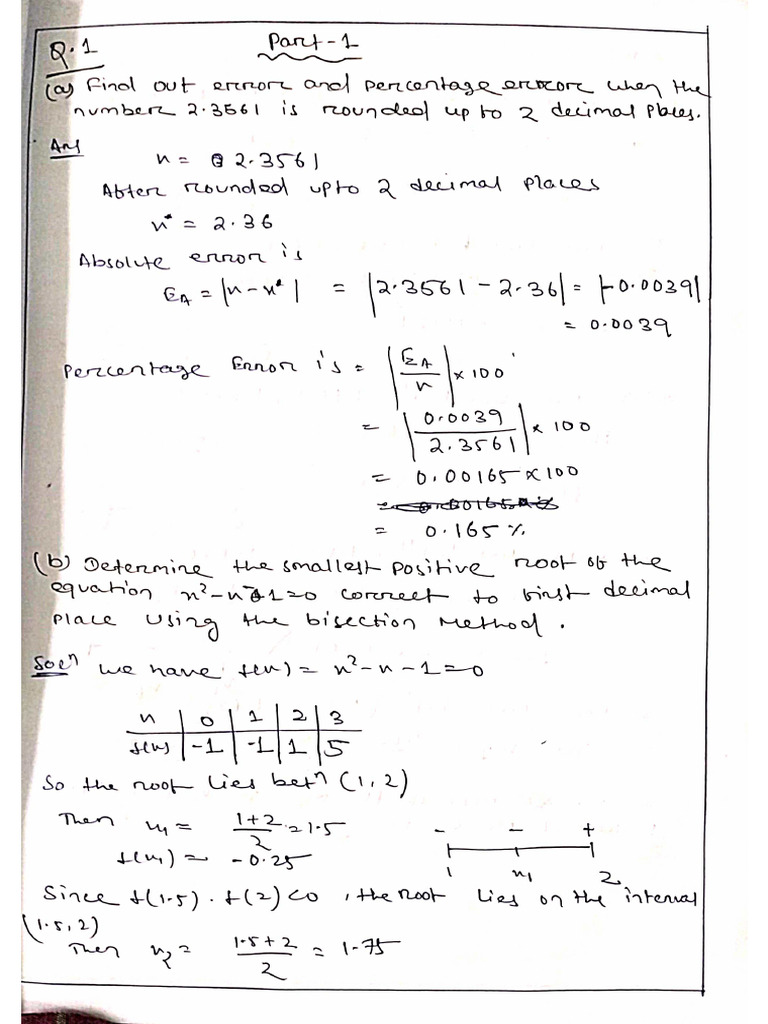 Q.1 Part-1
(a) Find out error and percentage error when the
number 2.3561 is rounded up to 2 decimal places.
Ans
x = 2.3561
After rounded upto 2 decimal places
x* = 2.36
Absolute error is
E_A = |x - x*| = |2.3561 - 2.36| = |-0.0039|
= 0.0039
Percentage Error is = |E_A/x| × 100
= |0.0039/2.3561| × 100
= 0.00165 × 100
= 0.165 %
(b) Determine the smallest positive root of the
equation x² - x - 1 = 0 correct to first decimal
place using the bisection method.
Solⁿ we have f(x) = x² - x - 1 = 0
x | 0 | 1 | 2 | 3
f(x) | -1 | -1 | 1 | 5
So the root lies betⁿ (1, 2)
Then x₁ = (1+2)/2 = 1.5
f(x₁) = -0.25
- - +
1 x₁ 2
Since f(1.5) . f(2) < 0, the root lies on the interval
(1.5, 2)
Then x₂ = (1.5+2)/2 = 1.75